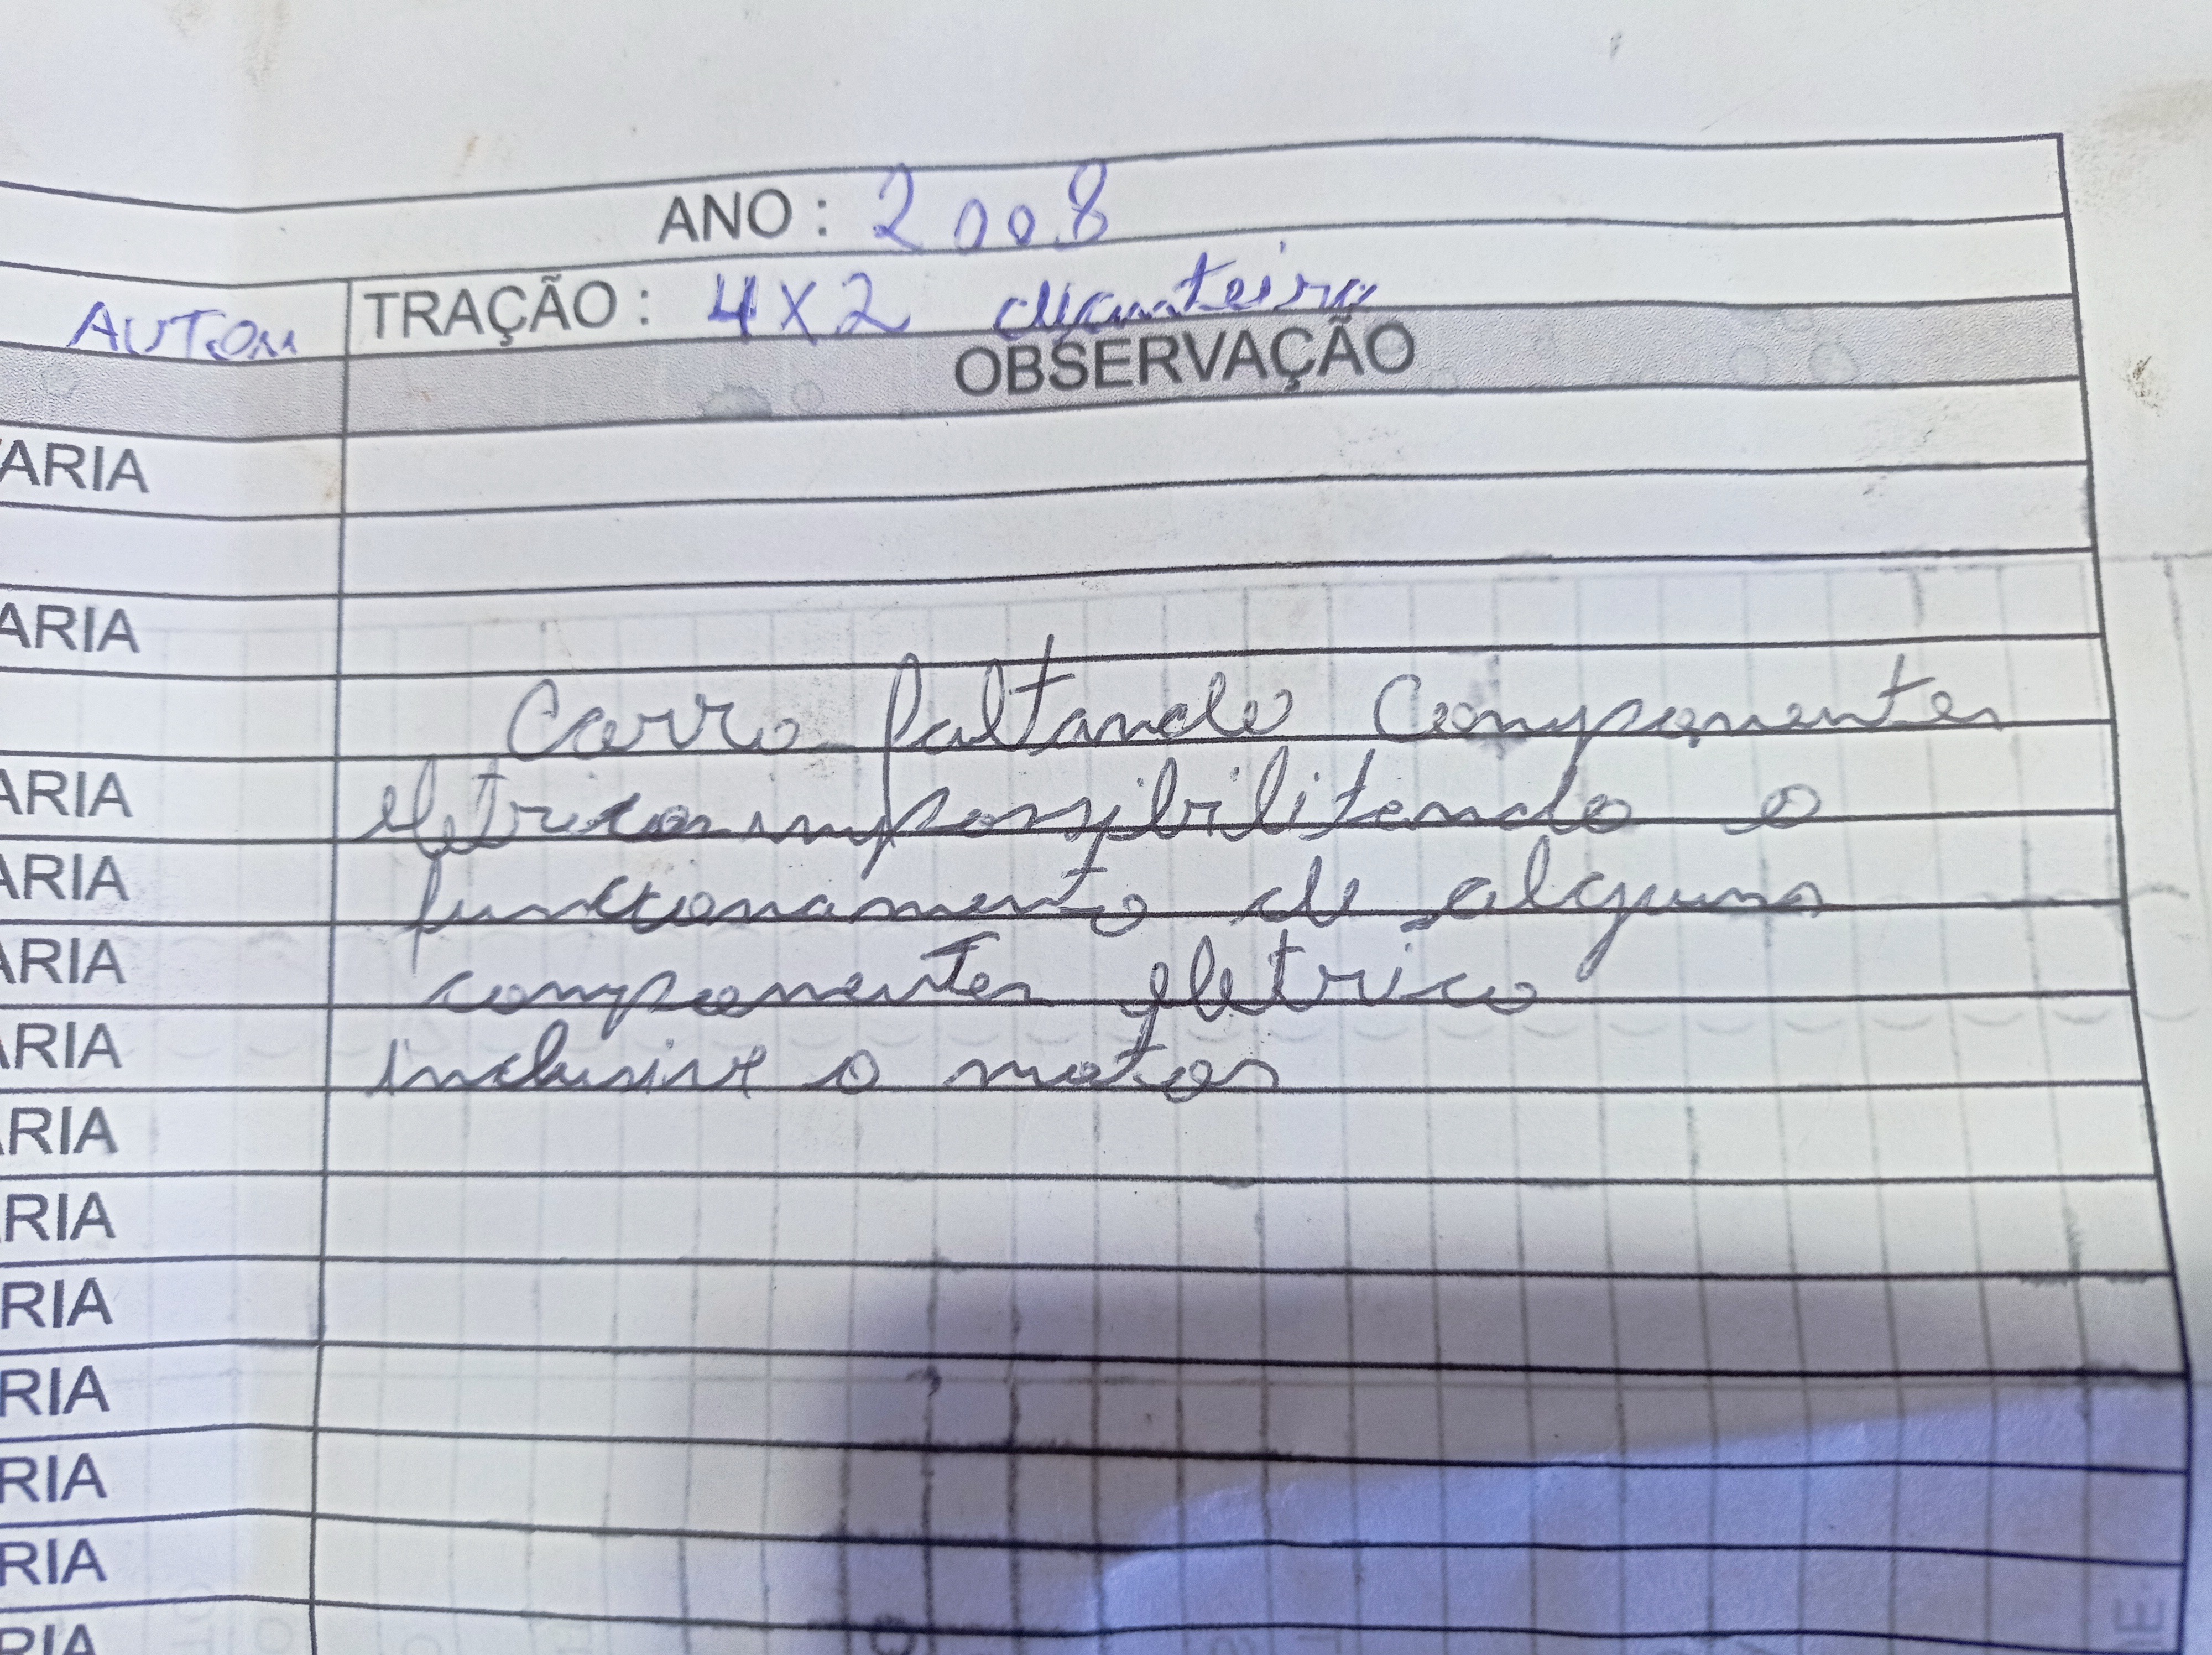 ANO : 2008
AUTOM TRAÇÃO : 4X2 dianteira
OBSERVAÇÃO
VARIA
ARIA
Carro faltando Componentes
ARIA eletricos impossibilitando o
ARIA funcionamento de alguns
ARIA componentes eletrico
ARIA inclusive o motor
RIA
RIA
RIA
RIA
RIA
RIA
RIA